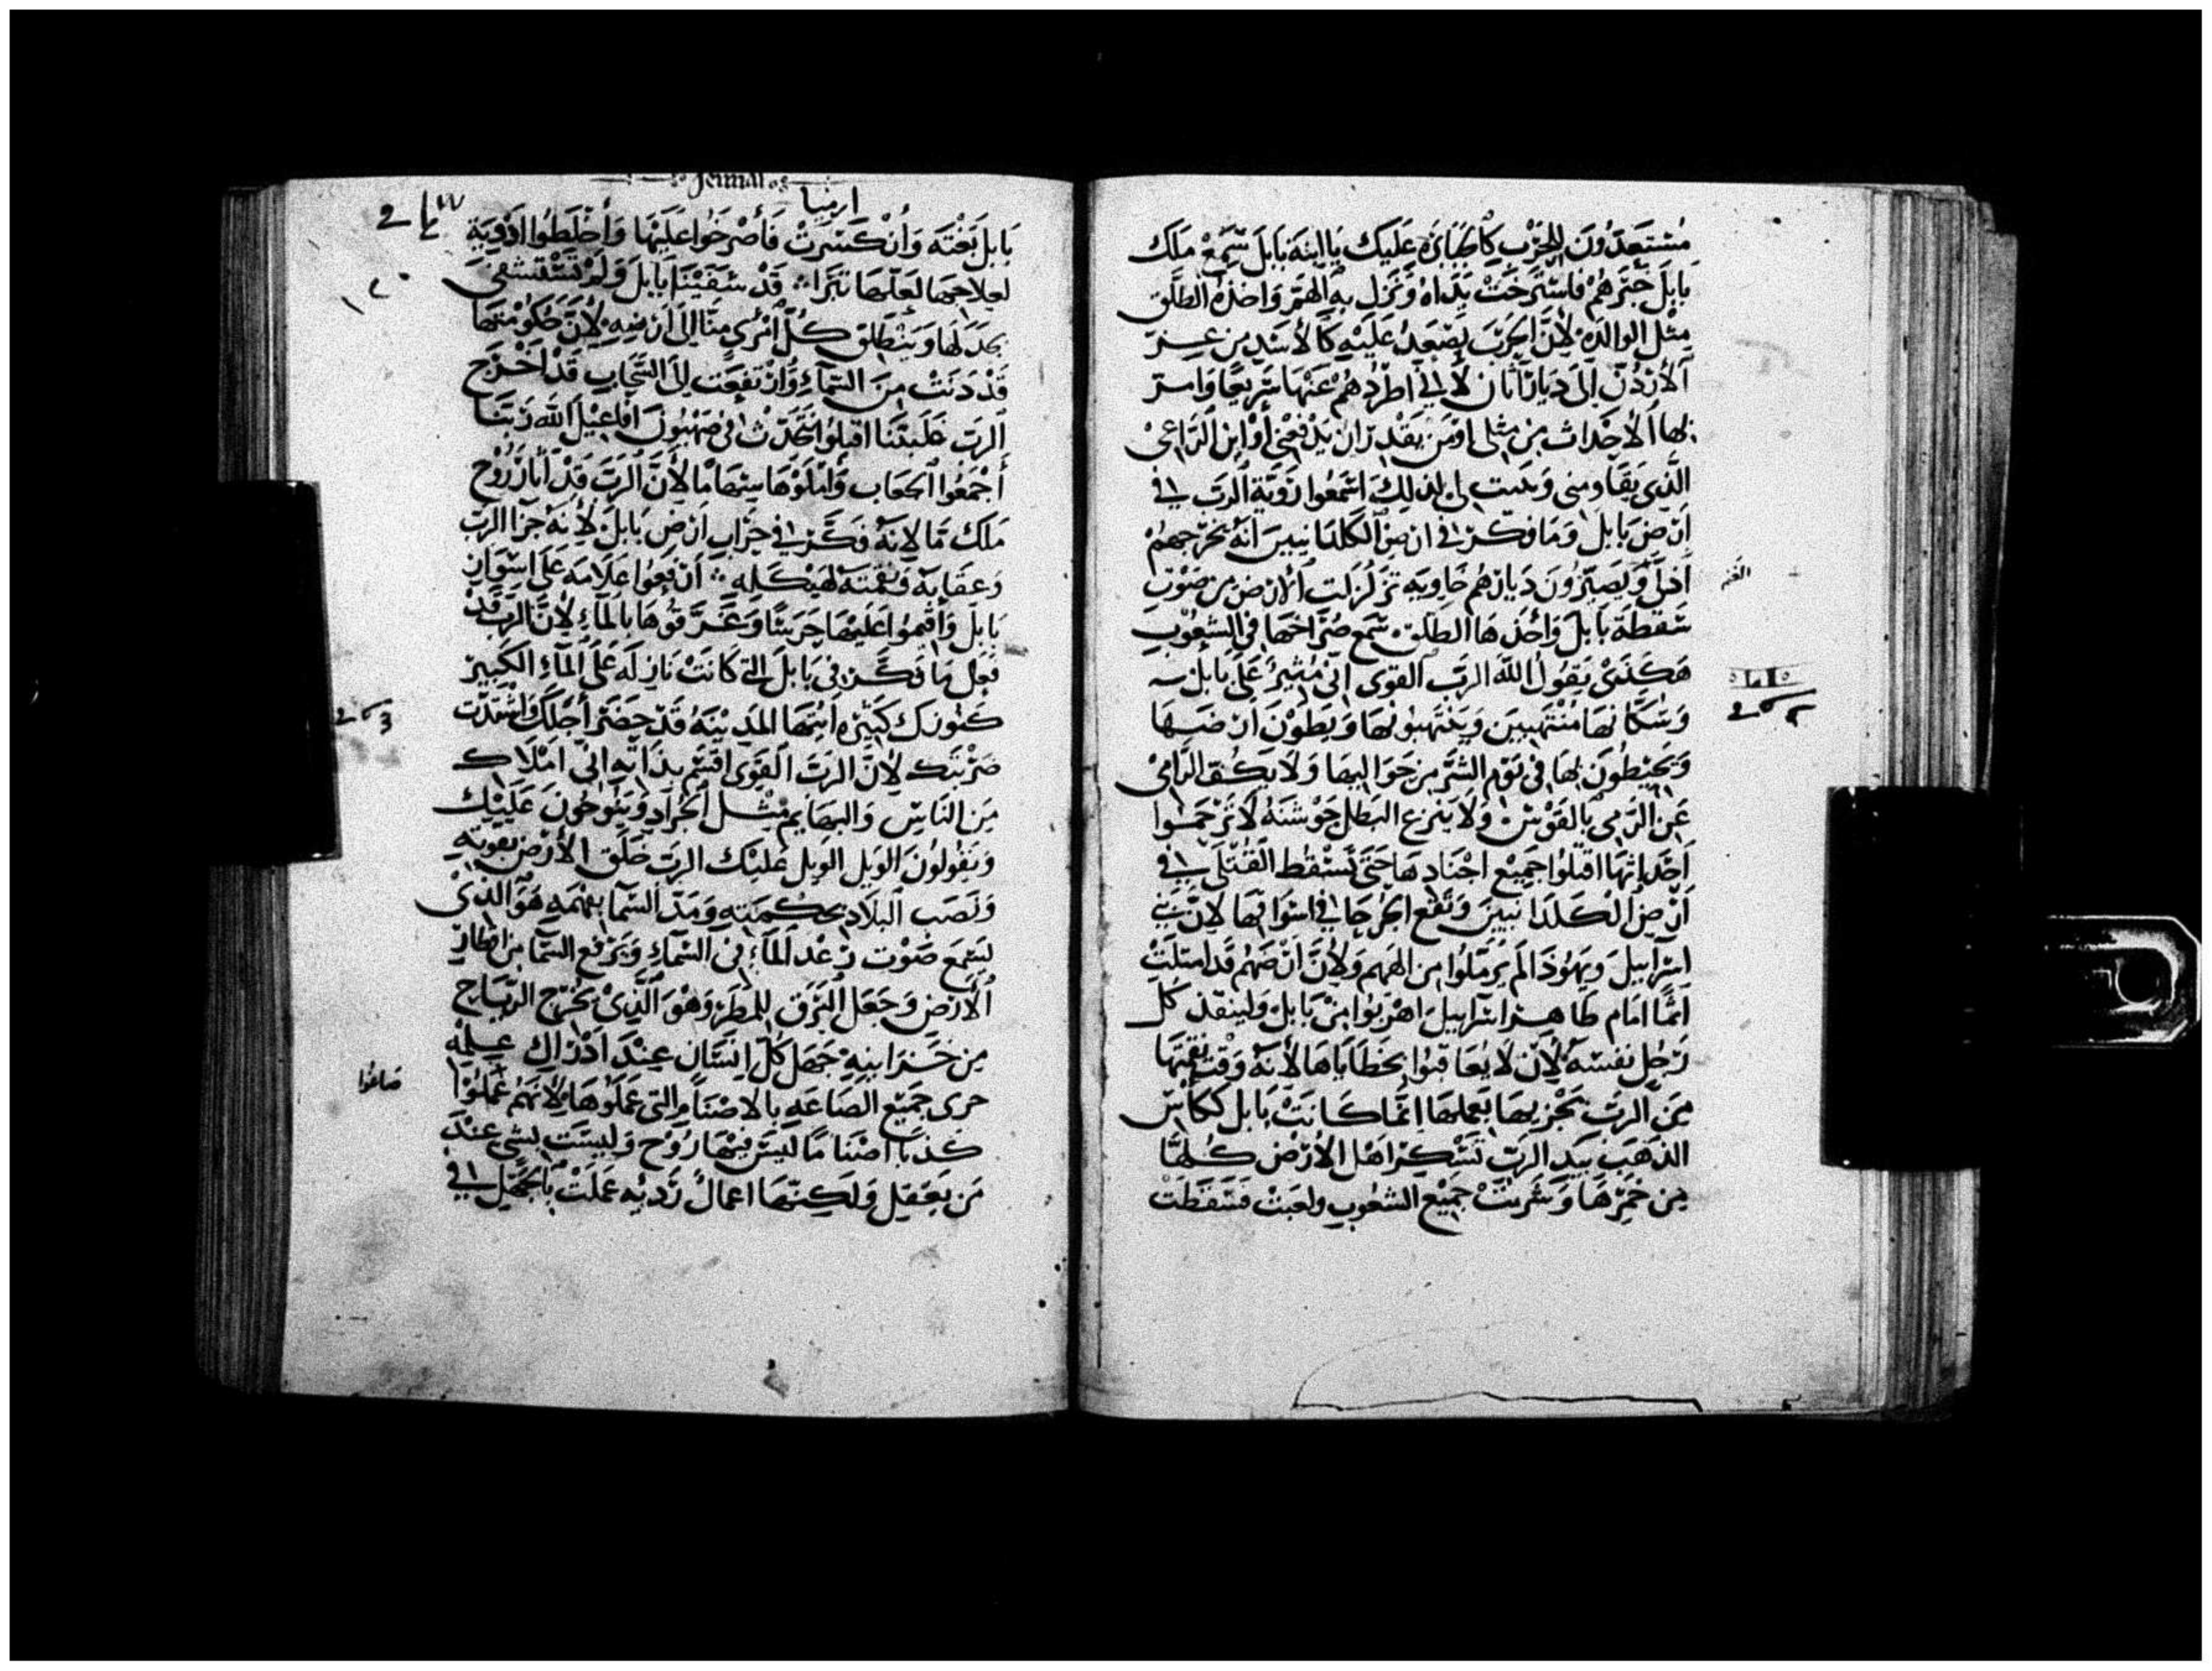 مُسْتَعِدُّونَ لِلحَرْبِ كَالجَبَابِرَهِ عَليك يَا ابنَةَ بَابلَ سَمِعْ مَلِك
بابلَ خَبَرَهُمْ فاسْتَرخَتْ يَدَاهُ وَنَزَلَ بهِ الهَمّ وَاخذهُ الطَلَق
مثل الوالدَه لأنَّ الحَرْبَ يَصْعَدُ عَلَيْهِ كَالأسَدِ من عِزّ
الأُرْدُنّ إلىَ ديارَاثان لأني اطرُدُهُمْ عَنْهَا سَرِيعًا وَامر
بها الأحْدَاث من مثلى او مَن يقدِر ان يَدْفعْنى أوْ اين الرَاعى
الذى يقَاومنى وَيثبت لى لذلِكَ اسْمَعُوا رَويّةِ الرَبّ في
ارْض بَابلَ وَمَا فكّر في ارض الكلدَانيينَ انّهُ يخرِجهمْ
أذلّ وَيَصيرُونَ ديارهُم خَاوِيَه تزلزلت الأرض من صَوْتِ
سَقطة بَابلَ وَاخذهَا الطلق سُمِعَ صُرَاخهَا فى الشعُوبِ
هَكَذَى يَقُولُ الله الربّ القوى اني مُثيرٌ عَلَى بابل
وَسُكَّانهَا مُنْتَهِبِين وَيَنْتهبونهَا وَيَطونَ ارضهَا
وَيحيطونَ بهَا في يَوْم الشرّ من حَوَاليهَا وَلا يكُفّ الرَامى
عَن الرَمى بالقَوْس وَلا ينزع البَطل جَوشنَهُ لا ترْحَمُوا
احْدَاثهَا اقتلوا جميْع اجْنَادهَا حَتى تسْقط القتلى في
ارْض الكلدَانيينَ وَتقع الجرحَا في اسْوَاقهَا لانّ بَني
اسرَاييل وَيَهُوذَا لم يرمَلوا من الههِم وَلأنّ ارضهُم قد امتلَتْ
اثمًا امَام طاهر اسرَاييل اهربُوا مِنْ بَابل وَلينقذ كل
رَجُل نفسَهُ لأن لا يعَاقبُوا بخطَايَاهَا لأنّهُ وَقت نقمتهَا
مِنَ الرَبّ يجْزيهَا بعملهَا انمَا كَانَتْ بَابل ككاسِ
الذهَبِ بيَدِ الربّ تُسْكِرُ اهْل الأرْض كُلهَا
مِن خمْرِهَا وَشَربَتْ جميْع الشعُوبِ ولعبَتْ فسَقطَتْ
الغنم
٥١
Jeremia
ارميا
بَابل بَغْتَه وَانْكسَرتْ فَاصْرخوا عَلَيْهَا وَأخْلطُوا ادْوِيَة
لعلاجهَا لعلّهَا تبْرَا قَدْ شفَيْنَا بابلَ وَلمْ تسْتَشفى
وَينطلق كُلّ امْرى مِنّا الىَ ارْضِهِ لأنّ حكومتهَا
قَدْ دَنَتْ مِنَ السّمَآءِ وَارْتفعَت الىَ السَّحَابِ قَدْ اخْرَج
الربّ غَلبتَنا اقبلوا نتحَدّث في صِهْيُونَ افَاعِيْل الله رَبّنَا
أجْمَعُوا الجعَاب وَامْلَوْهَا سِهَامًا لأنّ الرَبّ قَدْ أثار رُوْح
مَلك مَا لانهُ فكّر في خرَابِ ارْض بَابلَ لأنهُ جزا الربّ
وَعقابَه وَنقمَتَهُ لهيْكَلِهِ ارْفعوا عَلَامَه عَلى اسْوَارِ
بَابلَ وَأقيموا عَليهَا حَرَسًا وَغَرّقُوهَا بالمَاءِ لأنّ الربّ قَدْ
فعل مَا فكّر فى بَابلَ التي كَانَتْ نازله عَلَى المآءِ الكَبيرْ
كنوزك كَثيرَه ايتهَا المَدينَهُ قَدْ حضرَ أجَلك وَاشتدّت
ضَرْبَتك لأنّ الرَبّ القوىّ اقسَم بذَاتهِ اني امْلاك
مِنَ النَاسِ وَالبهَايم مِثل الجَرَادِ وَينوحُونَ عَلَيْكِ
وَيقولونَ الويل الويل عليْك الربّ خلَق الأرْض بقوته
وَنصَب البلَاد بحكمَتِهِ وَمَدّ السّمَا بفهمَهِ هَوَ الذىْ
ليسْمع صَوْت رَعْد المآءِ في السّمَآءِ وَيرْفع السّمَا من اقطَار
الأرْض وَجَعَل البَرْق للمَطَر وَهْوَ الَّذِىْ يخْرج الريَاح
مِن خَزَاينِهِ جَهَل كُلّ انسَان عِنْدَ ادْرَاكِ عِلمِه
خزى جَميْع الصَاغَهِ بالاصْنَام التى عَملوهَا لأنهُمْ عَملوْا
كذبًا اصْنَامًا ليْسَ فيهَا رُوْح وَليسَت بشى عِنْدَ
مَن يعَقل وَلكِنّهَا اعمَالٌ رَديه عَملَتْ بالجَهْل في
صاغوا